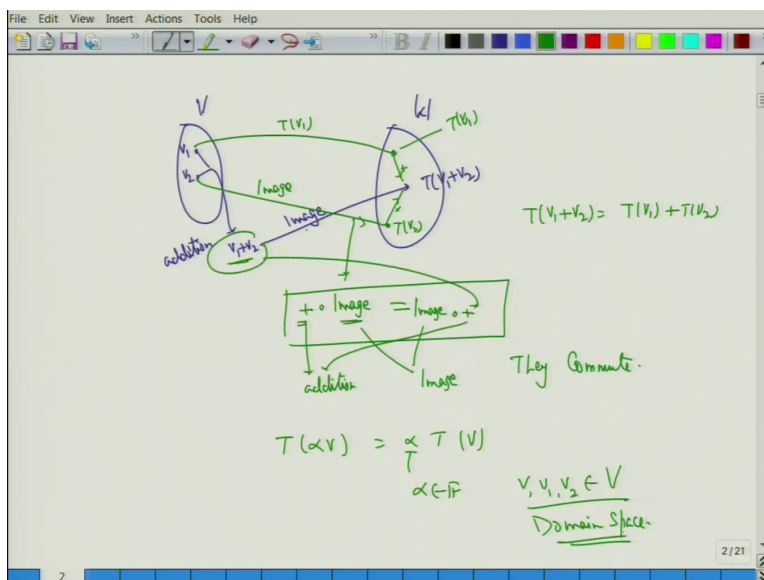 File Edit View Insert Actions Tools Help
V
W
T(v₁)
T(v₁)
v₁
v₂
Image
T(v₁+v₂)
T(v₁+v₂) = T(v₁) + T(v₂)
Image
T(v₂)
addition
v₁+v₂
+ ∘ Image = Image ∘ +
addition
Image
They Commute.
T(αv) = α T(v)
α ∈ F
v, v₁, v₂ ∈ V
Domain Space.
2/21
2